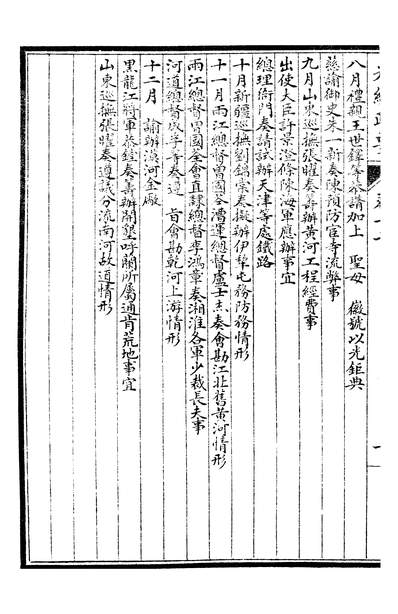 八月禮親王世鐸等恭請加上　聖母　徽號以光鉅典
慈諭御史朱一新奏陳預防宦寺流弊事
九月山東巡撫張曜奏善辦黃河工程經費事
出使大臣許景澄條陳海軍應辦事宜
總理衙門奏請試辦天津等處鐵路
十月新疆巡撫劉錦棠奏擬辦伊犂屯務防務情形
十一月兩江總督曾國荃漕運總督盧士杰奏會勘江北舊黃河情形
兩江總督曾國荃會直隸總督李鴻章奏湘淮各軍少裁長夫事
河道總督成孚等奏遵　旨會勘乾河上游情形
十二月　諭辦漠河金廠
黑龍江將軍恭鏜奏善辦開墾呼蘭所屬通肯荒地事宜
山東巡撫張曜奏遵議分流南河故道情形